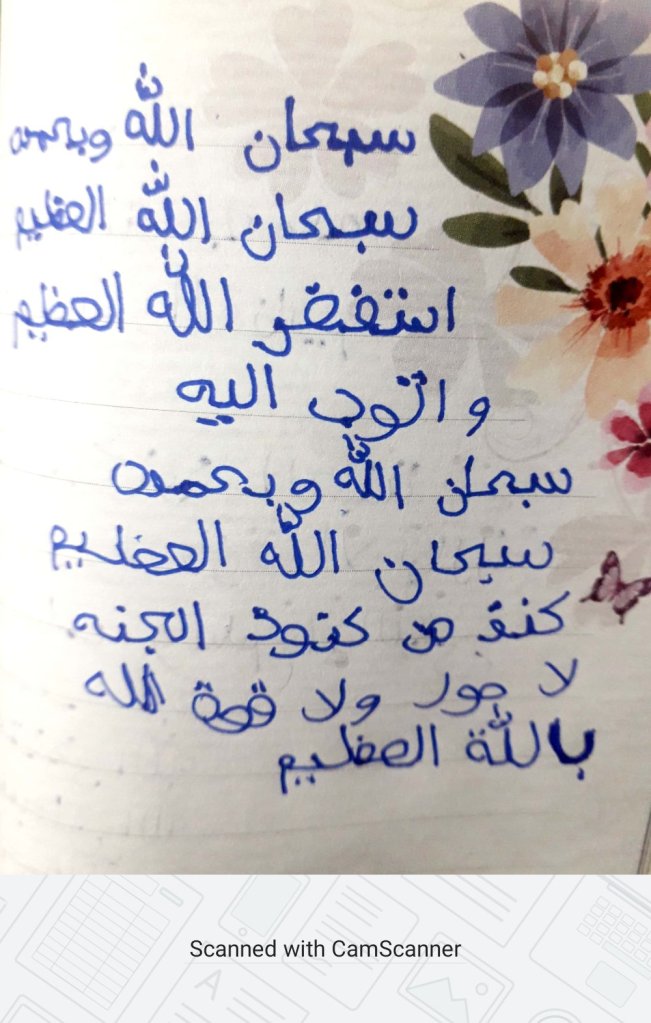 سبحان الله وبحمده
سبحان الله العظيم
استغفر الله العظيم
واتوب اليه
سبحان الله وبحمده
سبحان الله العظيم
كنز من كنوز الجنه
لا حول ولا قوة الله
بالله العظيم
Scanned with CamScanner